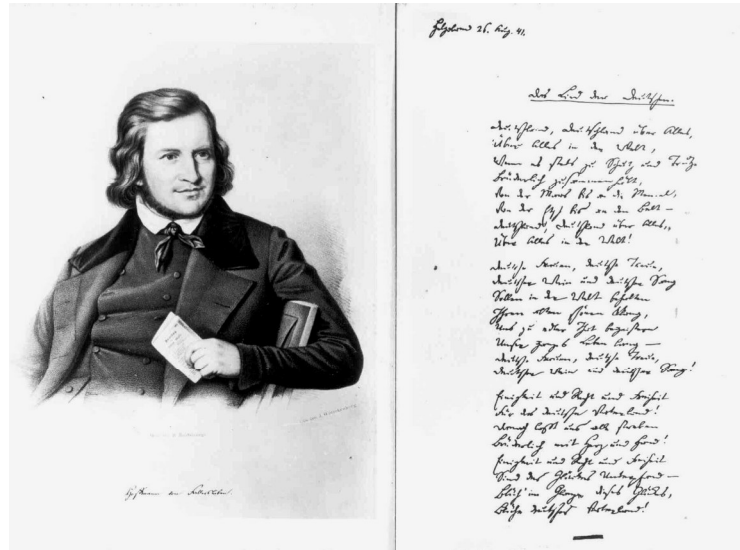 Hoffmann von Fallersleben.
Helgoland 26. Aug. 41.
Das Lied der Deutschen.
Deutschland, Deutschland über Alles,
Über Alles in der Welt,
Wenn es stets zu Schutz und Trutze
Brüderlich zusammenhält,
Von der Maas bis an die Memel,
Von der Etsch bis an den Belt –
Deutschland, Deutschland über Alles,
Über Alles in der Welt!
Deutsche Frauen, deutsche Treue,
Deutscher Wein und deutscher Sang
Sollen in der Welt behalten
Ihren alten schönen Klang,
Uns zu edler That begeistern
Unser ganzes Leben lang –
Deutsche Frauen, deutsche Treue,
Deutscher Wein und deutscher Sang!
Einigkeit und Recht und Freiheit
Für das deutsche Vaterland!
Danach lasst uns alle streben
Brüderlich mit Herz und Hand!
Einigkeit und Recht und Freiheit
Sind des Glückes Unterpfand –
Blüh im Glanze dieses Glückes,
Blühe deutsches Vaterland!